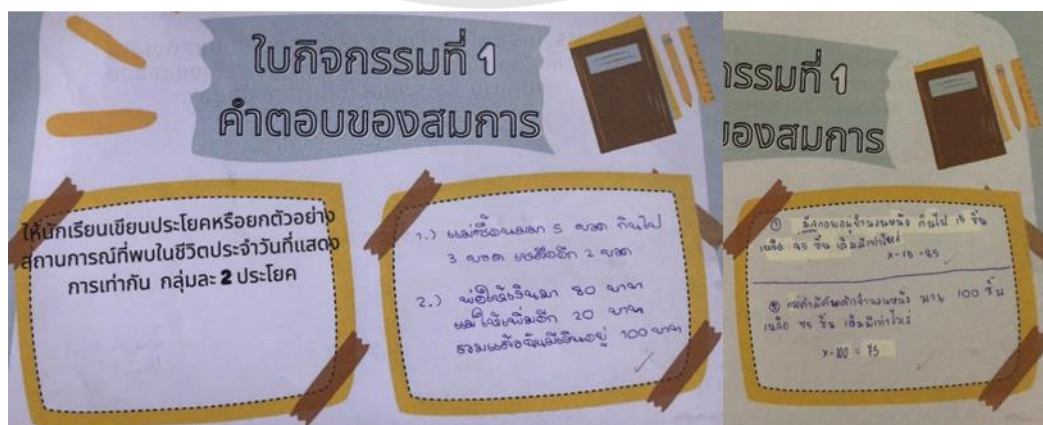 ใบกิจกรรมที่ 1
คำตอบของสมการ
ให้นักเรียนเขียนประโยคหรือยกตัวอย่าง
สถานการณ์ที่พบในชีวิตประจำวันที่แสดง
การเท่ากัน กลุ่มละ 2 ประโยค
1.) แม่ซื้อนมมา 5 ขวด กินไป
3 ขวด เหลืออีก 2 ขวด
2.) พ่อให้เงินมา 80 บาท
แม่ให้เพิ่มอีก 20 บาท
รวมแล้วฉันมีเงินอยู่ 100 บาท
กรรมที่ 1
ของสมการ
① จำนวนหนึ่ง กินไป 15 ชิ้น
เหลือ ชิ้น เดิมมีเท่าไหร่
x-15 =85
② แม่ค้ามี จำนวนหนึ่ง ขาย 100 ชิ้น
เหลือ 75 ชิ้น เดิมมีเท่าไหร่
x-100 = 75